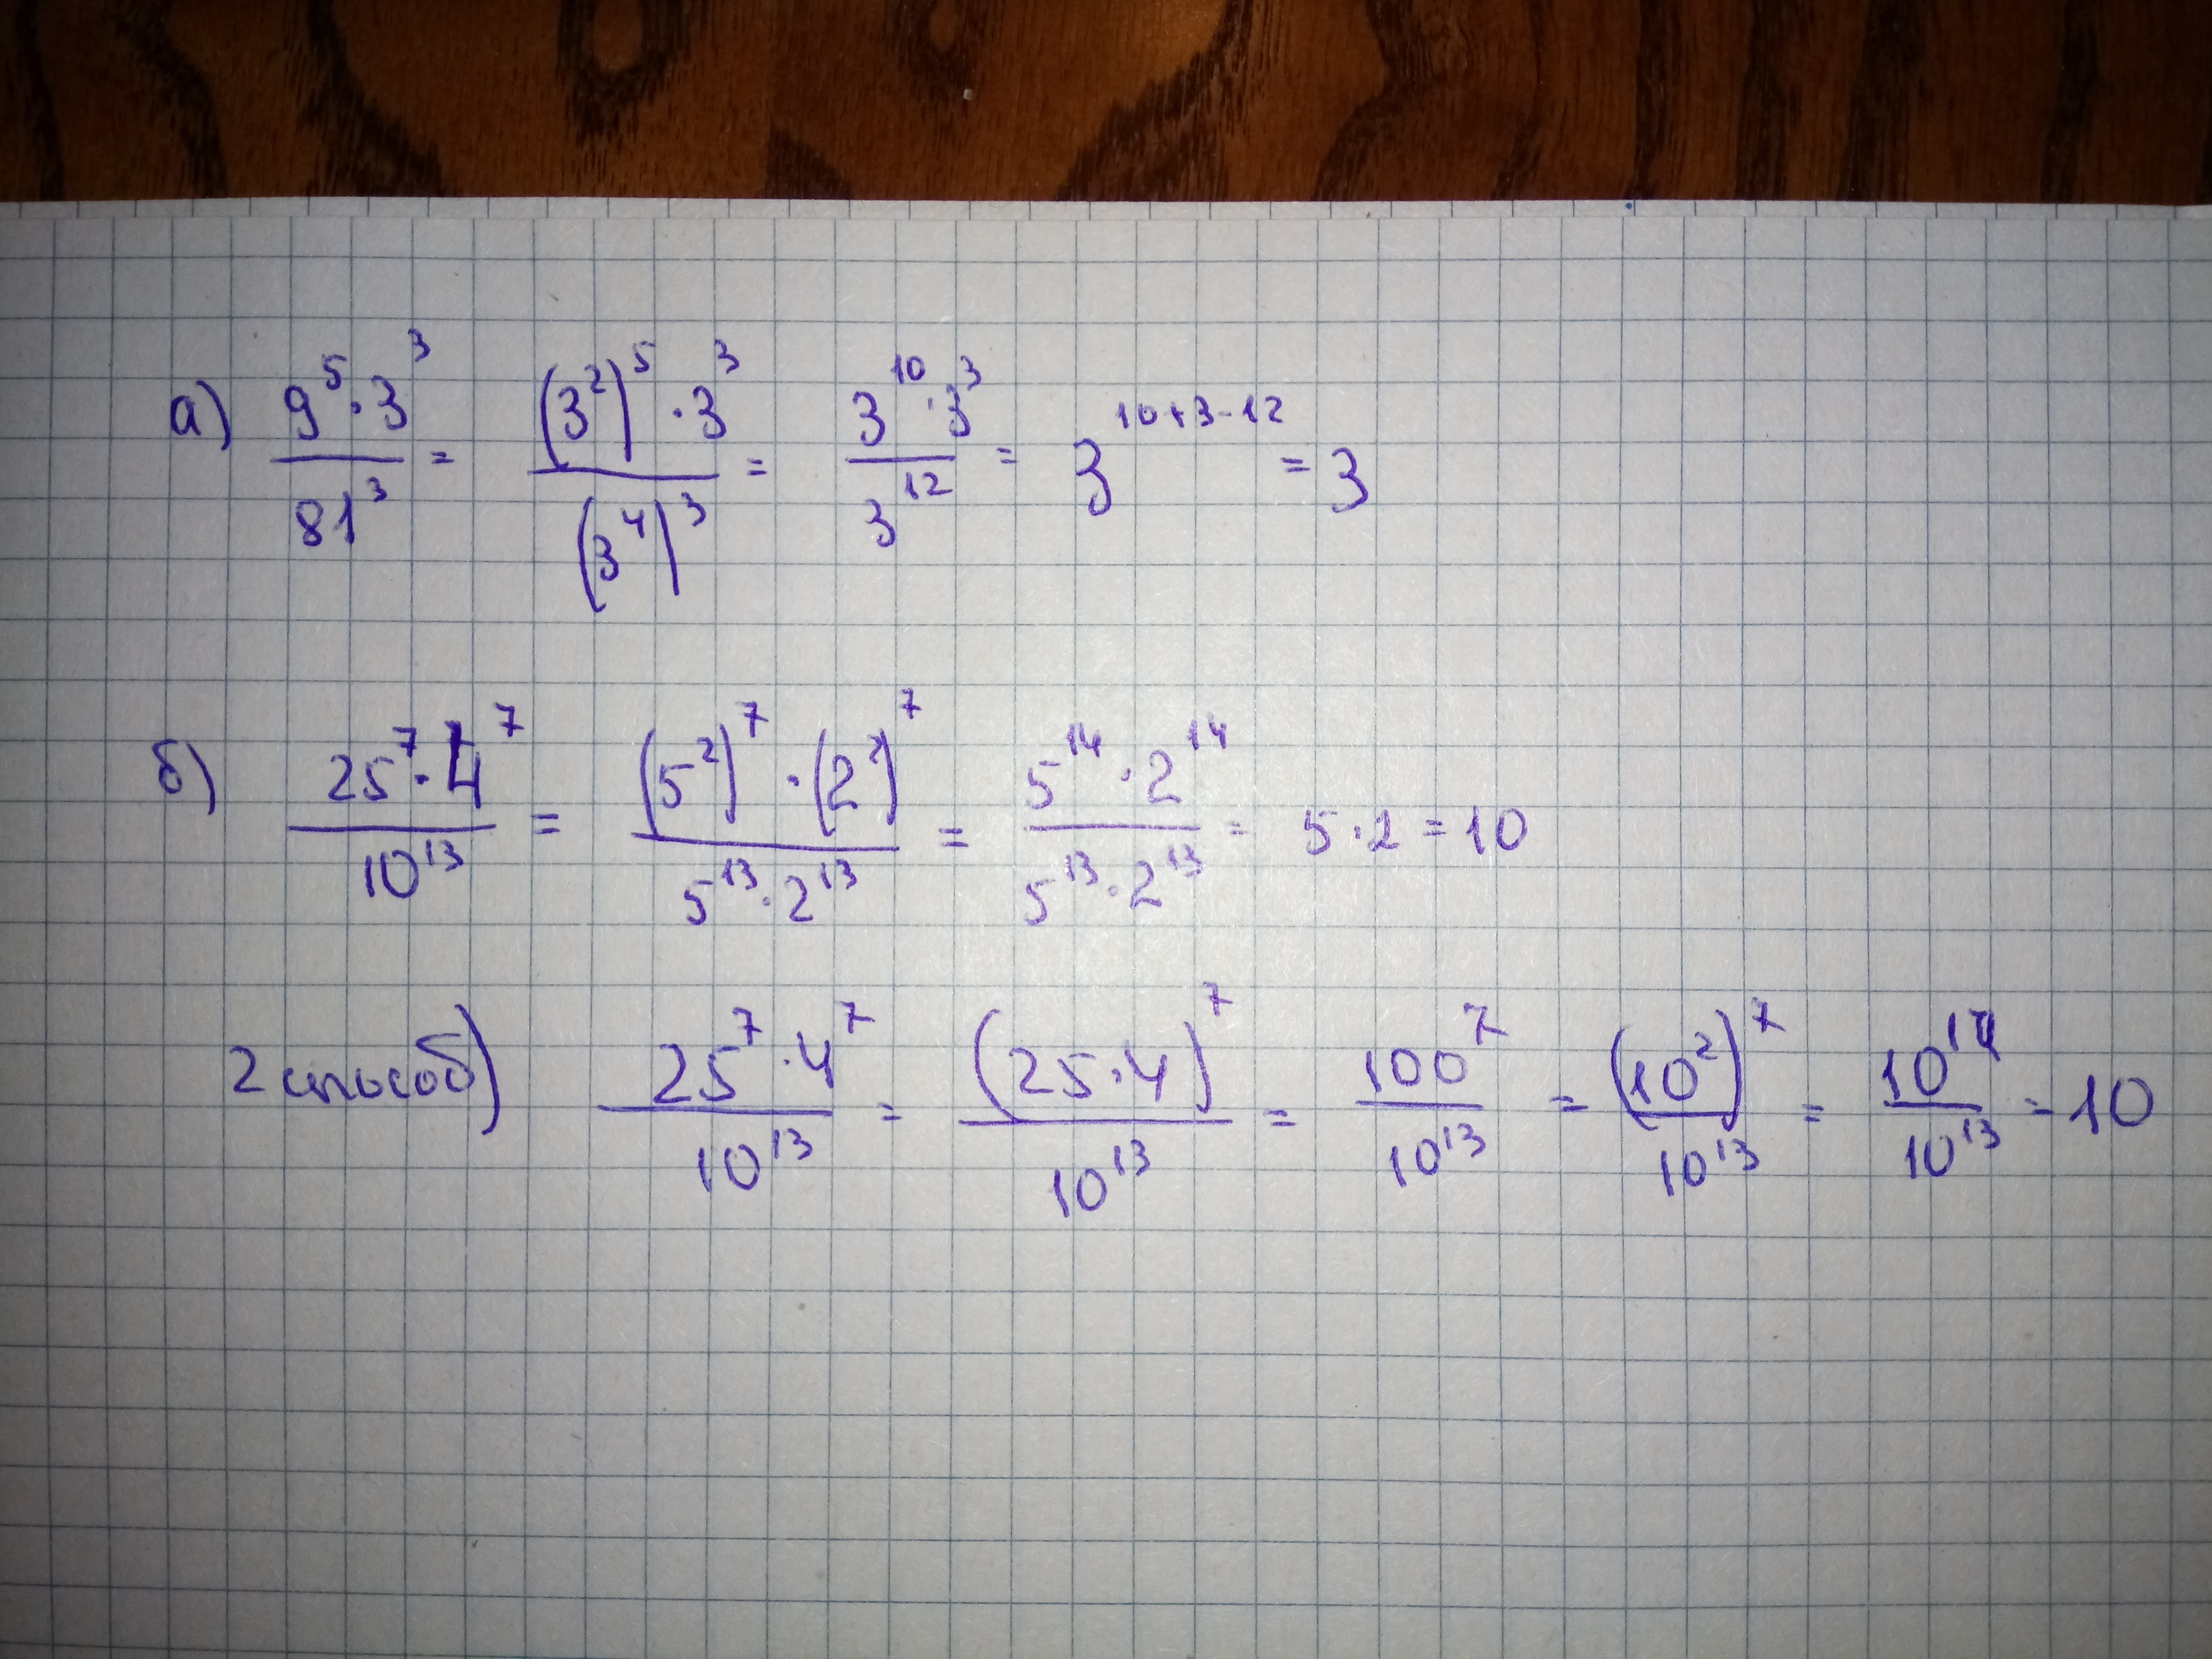 а) 9⁵·3³/81³ = (3²)⁵·3³/(3⁴)³ = 3¹⁰·3³/3¹² = 3¹⁰⁺³⁻¹² = 3
б) 25⁷·4⁷/10¹³ = (5²)⁷·(2²)⁷/5¹³·2¹³ = 5¹⁴·2¹⁴/5¹³·2¹³ = 5·2 = 10
2 способ) 25⁷·4⁷/10¹³ = (25·4)⁷/10¹³ = 100⁷/10¹³ = (10²)⁷/10¹³ = 10¹⁴/10¹³ = 10